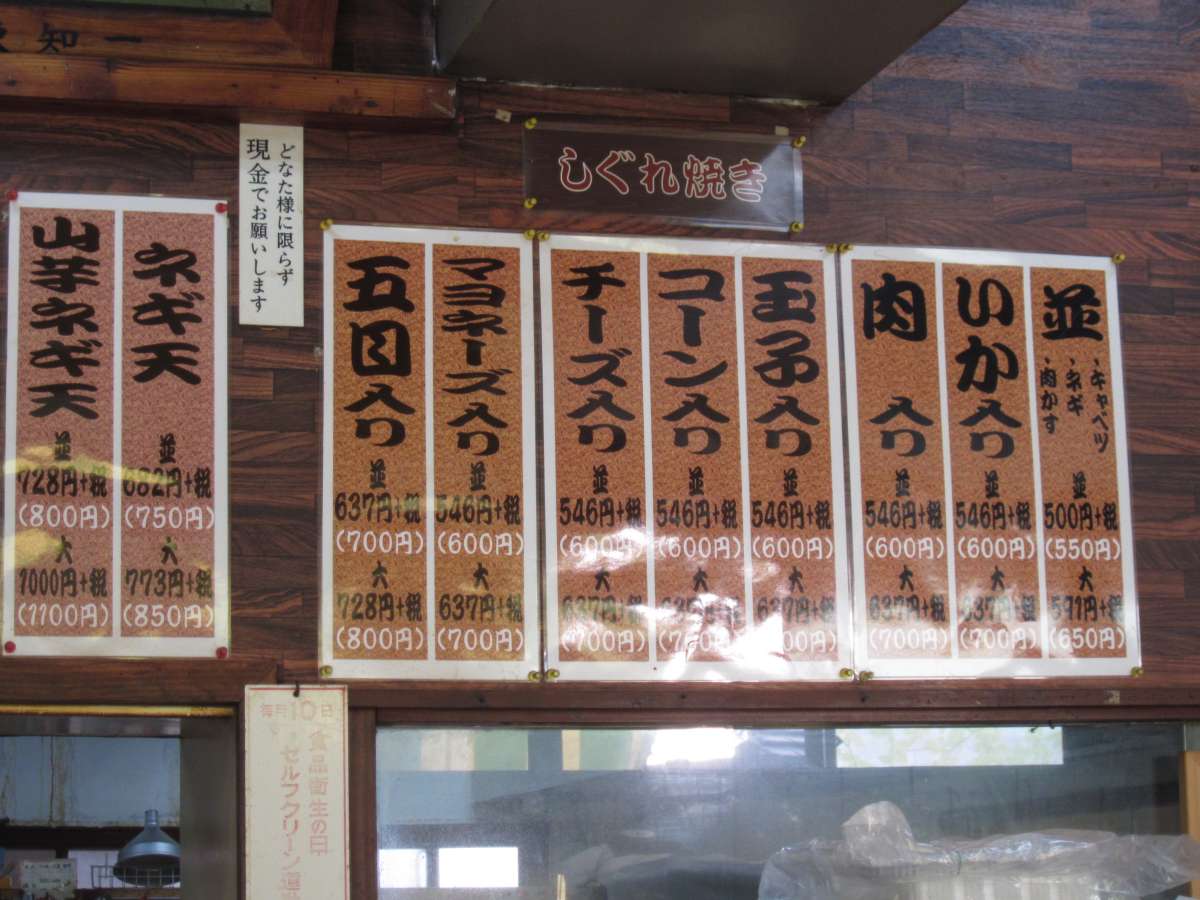 一知
どなた様に限らず
現金でお願いします
しぐれ焼き
並
・キャベツ
・ネギ
・肉かす
並
500円+税
(550円)
大
591円+税
(650円)
いか入り
並
546円+税
(600円)
大
637円+税
(700円)
肉入り
並
546円+税
(600円)
大
637円+税
(700円)
玉子入り
並
546円+税
(600円)
大
637円+税
(700円)
コーン入り
並
546円+税
(600円)
大
(700円)
チーズ入り
並
546円+税
(600円)
大
637円+税
(700円)
マヨネーズ入り
並
546円+税
(600円)
大
637円+税
(700円)
五目入り
並
637円+税
(700円)
大
728円+税
(800円)
ネギ天
並
682円+税
(750円)
大
773円+税
(850円)
山芋ネギ天
並
728円+税
(800円)
大
1000円+税
(1100円)
毎月10日
食品衛生の日
セルフクリーン